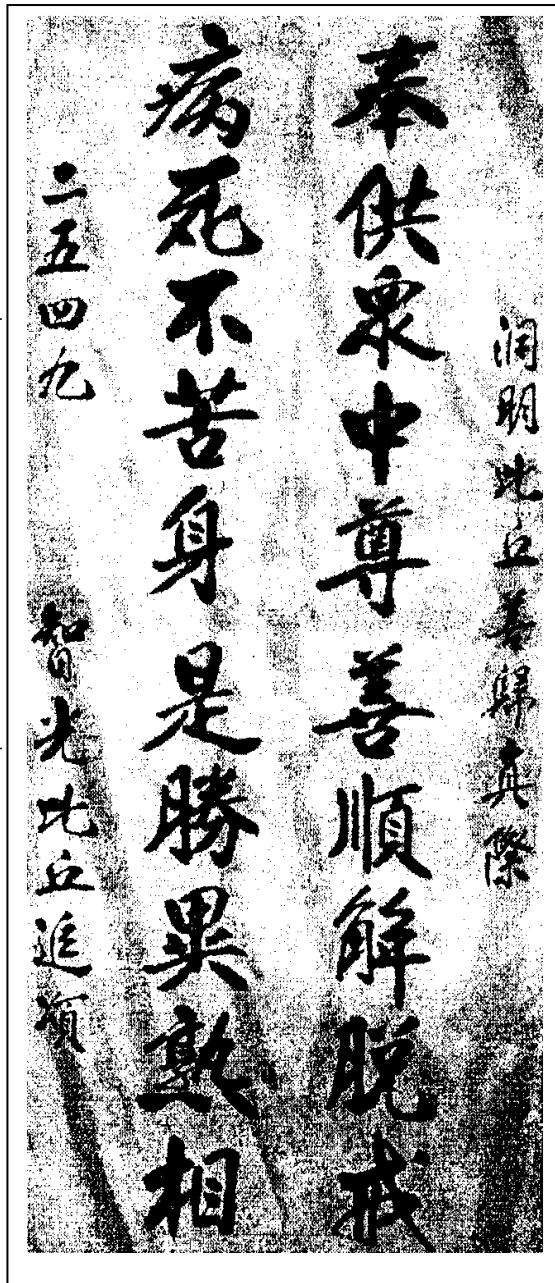 润明比丘善归真際
奉供眾中尊善順解脫戒
病死不苦身是勝異熟相
二五四九
智光比丘追頌